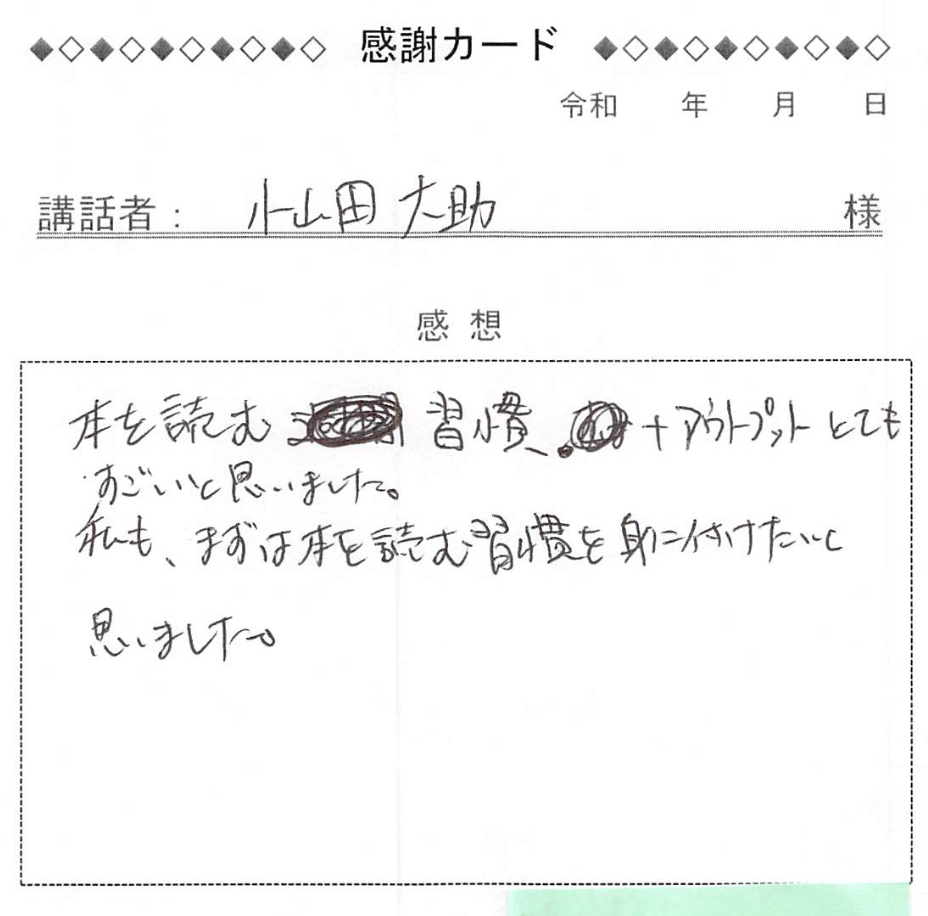 ◆◇◆◇◆◇◆◇◆◇ 感謝カード ◆◇◆◇◆◇◆◇◆◇
令和 年 月 日
講話者: 小山田大助 様
感想
本を読む 習慣、+アウトプットとても
すごいと思いました。
私も、まずは本を読む習慣を身に付けたいと
思いました。